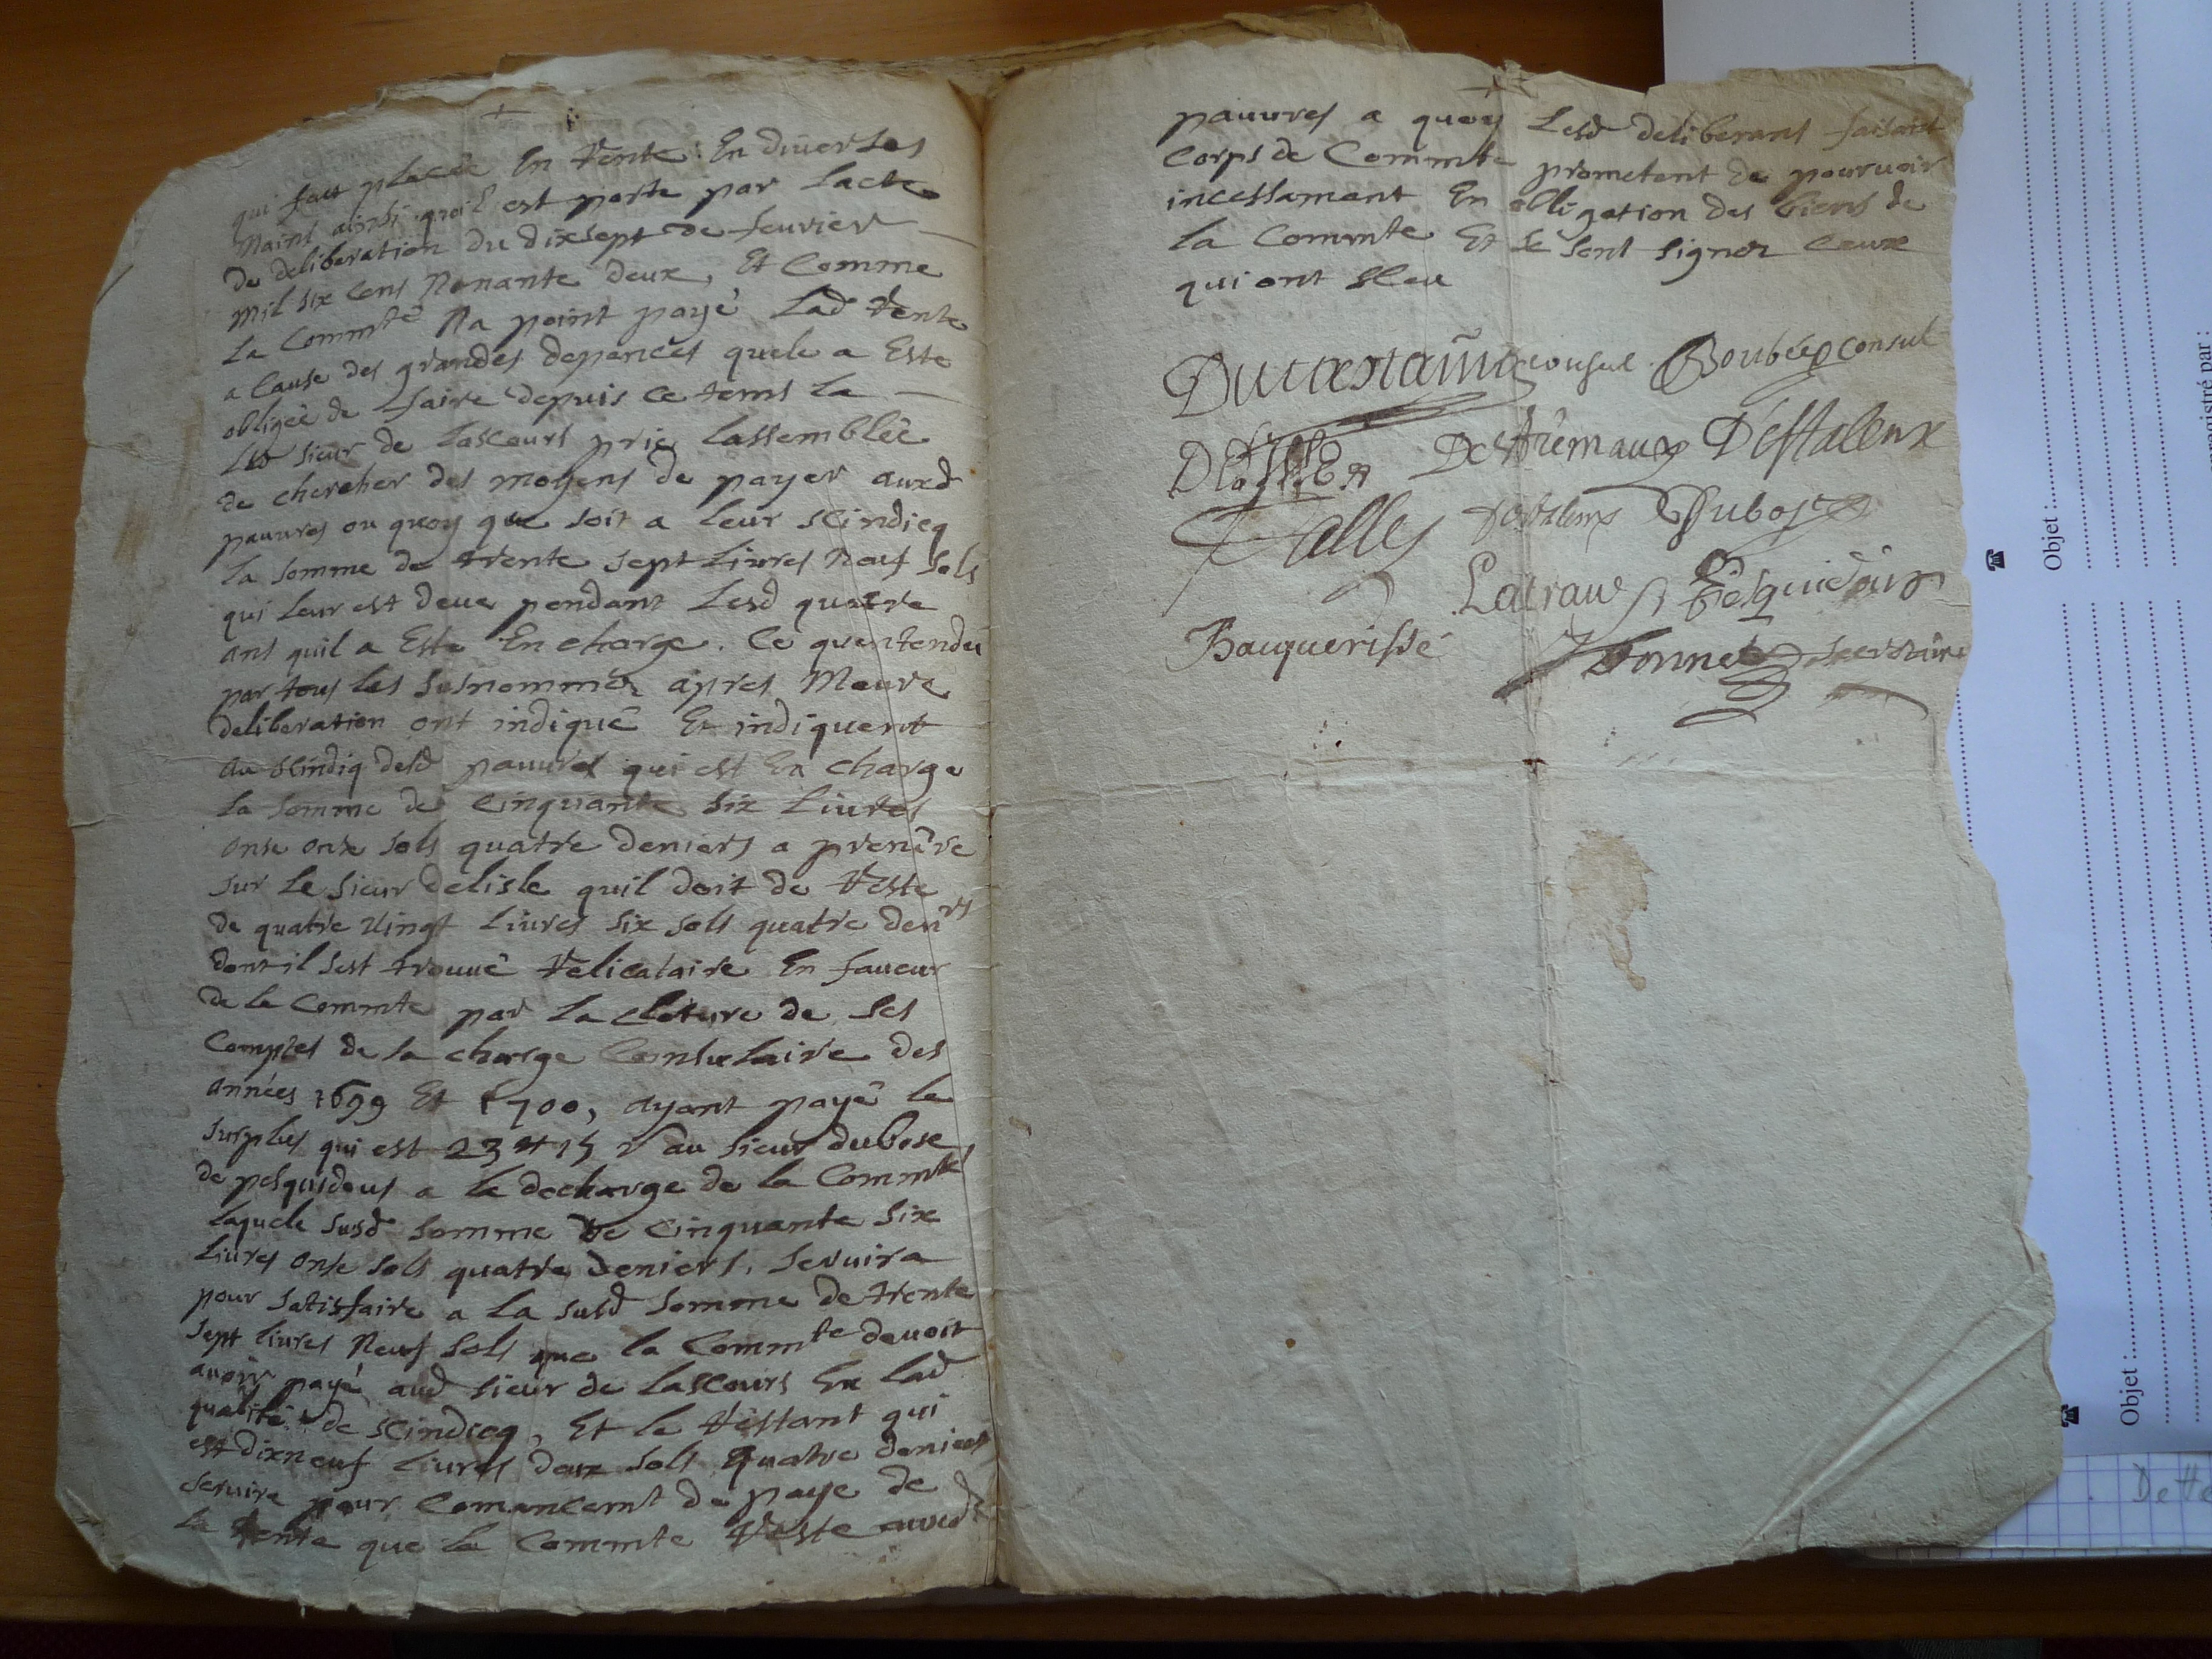 qui fait placée En rente En diverses
mains ainsi quoil est porte par lacte
de deliberation du dixsept de feurier
mil six cens Nonante deux, Et Comme
La Commté Na point payé Lad rente
a Cause des grandes depances quele a Este
obligée de faire depuis ce tems la
Led sieur de Lascours prie lassemblée
de chercher des moyens de payer auxd
pauures ou quoy que soit a leur scindicq
la somme de trente sept Liures Neuf sols
qui leur est deue pendant Lesd quatre
ans quil a Este En charge. Ce quentendu
par tous les susnommés apres Meure
deliberation ont indiqué Et indiquent
Au scindiq desd pauures qui est En charge
la somme de cinquante six Liures
onse onse sols quatre deniers a prendre
sur le sieur delisle quil doit de reste
de quatre vingt Liures six sols quatre denrs
dont il sest trouué relicataire En faueur
de la Commte par la cloture de ses
Comptes de sa charge Consulaire des
Années 1699 Et 1700, ayant payé le
surplus qui est 23 ₶ 15 s au sieur dubosc
de pesquidous a la decharge de la Commté
laquele susd somme de cinquante six
Liures onse sols quatre deniers, seruira
pour satisfaire a la susd somme de trente
sept liures Neuf sols que la Commte deuoit
auoir payé aud sieur de Lascours En lad
qualité de scindicq, Et le restant qui
est dixneuf Liures deux sols quatre deniers
seruira pour comancemt de paye de
la rente que la Commte reste auxd
pauures a quoy Lesd deliberans faisant
Corps de Commte prometent de pouruoir
incessamant En obligation des biens de
la Commte Et se sont signez Ceux
qui ont sceu
consul Boubée consul
Destrémaux D'Estaleux
Salles Destaleux Dubosc
Lacraue Pesquidoux
Bauquerisse
Bonnet secretaire
Objet :
Objet :